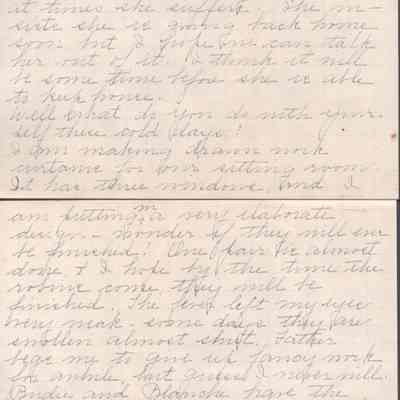 at times she suffers. She in-
sists she is going back home
soon but I hope we can talk
her out of it. I think it will
be some time before she is able
to keep house.
Well what do you do with your-
self these cold days?
I am making drawn work
curtains for our sitting room.
It has three windows, and I
am putting in a very elaborate
design - wonder if they will ever
be finished! One pair is almost
done & I hope by the time the
robins come they will be
finished. The fever left my eyes
very weak - some days they are
swollen almost shut. Father
begs me to give up fancy work
for awhile, but guess I never will.
and Blanche have the